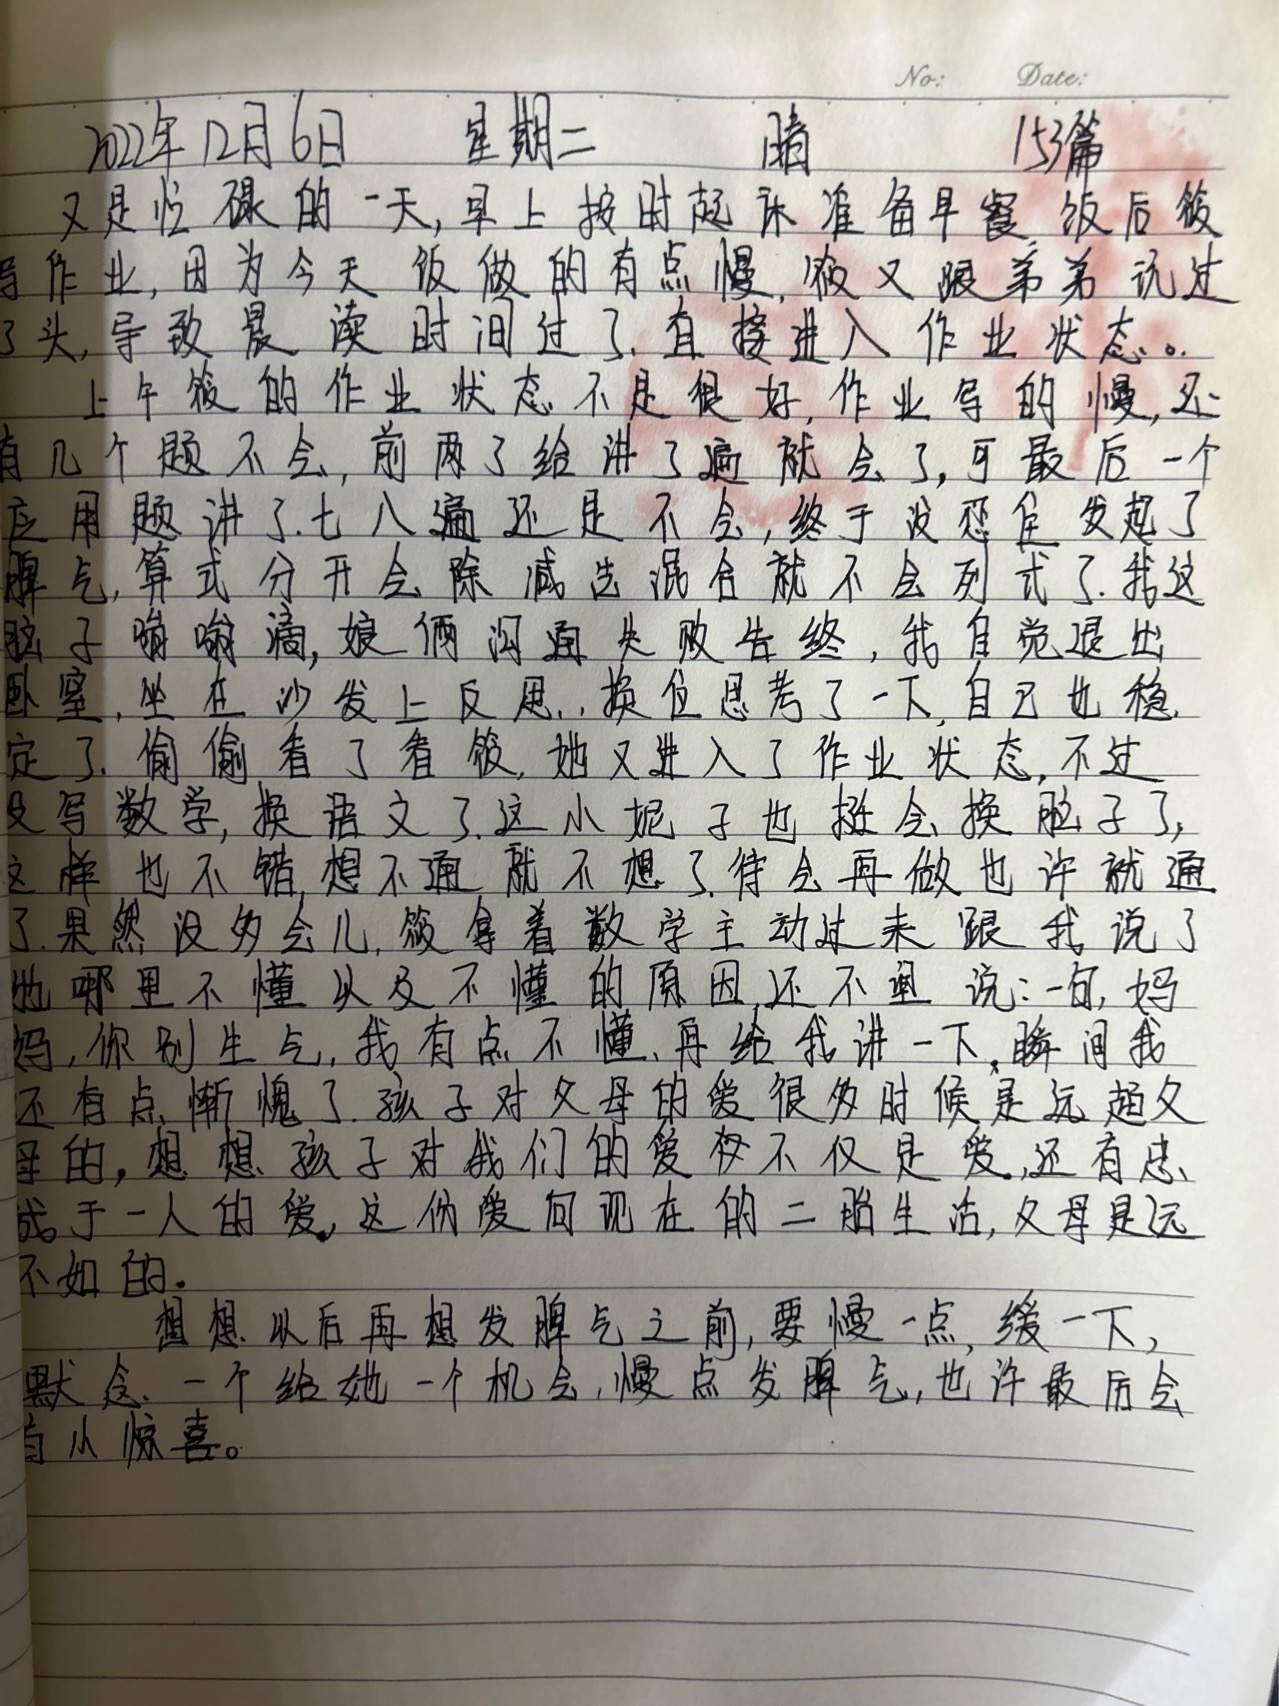 No: Date:
2022年12月6日 星期二 晴 153篇
又是忙碌的一天,早上按时起床准备早餐,饭后筱
写作业,因为今天饭做的有点慢,筱又跟弟弟玩过
了头,导致晨读时间过了.直接进入作业状态。
上午筱的作业状态不是很好,作业写的慢,还
有几个题不会,前两了给讲了遍就会了,可最后一个
应用题讲了七八遍还是不会,终于没忍住发起了
脾气,算式分开会除减法混合就不会列式了.我这
脑子嗡嗡滴,娘俩沟通失败告终,我自觉退出
卧室,坐在沙发上反思..换位思考了一下,自己也稳
定了.偷偷看了看筱,她又进入了作业状态,不过
没写数学,换语文了.这小妮子也挺会换脑子了,
这样也不错,想不通就不想了,待会再做也许就通
了.果然没多会儿,筱拿着数学主动过来跟我说了
她哪里不懂以及不懂的原因,还不通说:一句,妈
妈,你别生气,我有点不懂,再给我讲一下,瞬间我
还有点惭愧了.孩子对父母的爱很多时候是远超父
母的,想想孩子对我们的爱不仅是爱,还有忠
诚于一人的爱,这份爱向现在的二胎生活,父母是远
不如的.
想想以后再想发脾气之前,要慢一点,缓一下,
默念.一个给她一个机会,慢点发脾气,也许最后会
有小惊喜。